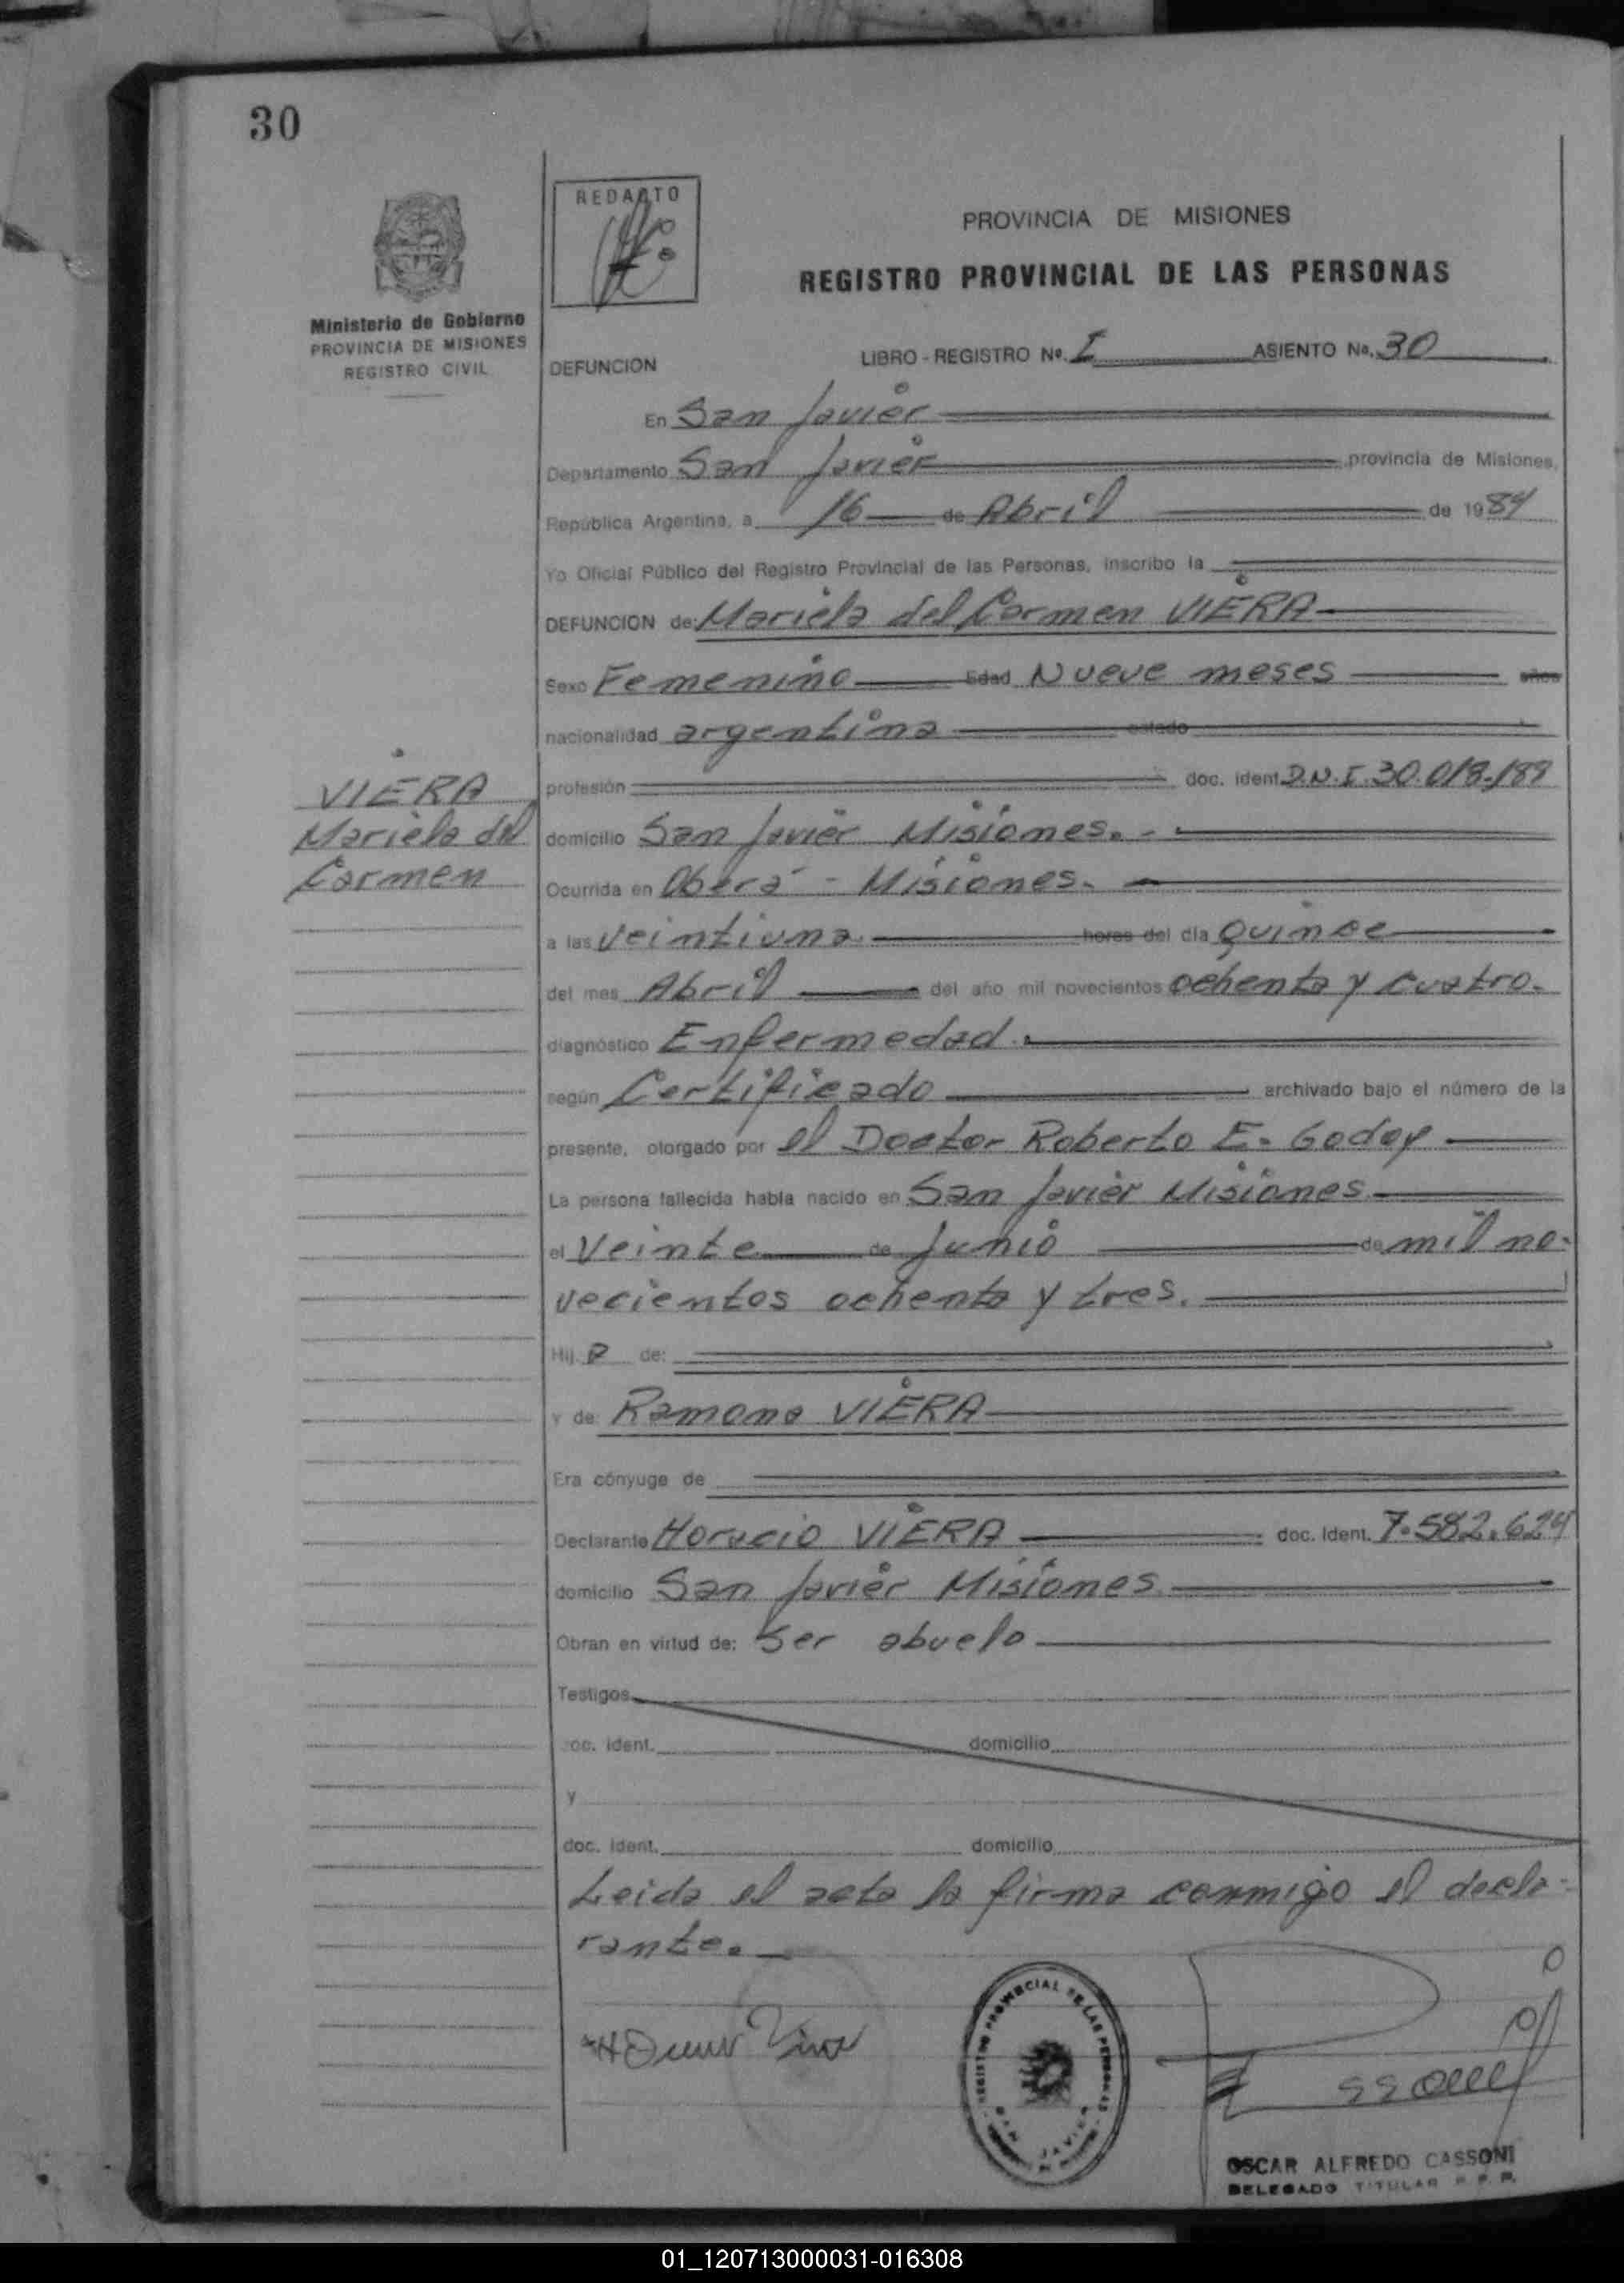 30
REDACTO
PROVINCIA DE MISIONES
REGISTRO PROVINCIAL DE LAS PERSONAS
Ministerio de Gobierno
PROVINCIA DE MISIONES
REGISTRO CIVIL
DEFUNCION
LIBRO - REGISTRO No. I ASIENTO No. 30
En San Javier
Departamento San Javier provincia de Misiones,
República Argentina, a 16 de Abril de 1984
Yo Oficial Público del Registro Provincial de las Personas, inscribo la
DEFUNCION de: Mariela del Carmen VIERA
Sexo Femenino Edad Nueve meses años
nacionalidad argentina estado
VIERA
Mariela del
Carmen
profesión doc. ident. D.N.I. 30.018.189
domicilio San Javier Misiones. -
Ocurrida en Oberá - Misiones.
a las veintiuna horas del día quince
del mes Abril del año mil novecientos ochenta y cuatro.
diagnóstico Enfermedad.
según Certificado archivado bajo el número de la
presente, otorgado por el Doctor Roberto E. Godoy
La persona fallecida había nacido en San Javier Misiones
el Veinte de Junio de mil no-
vecientos ochenta y tres.
Hij a de:
y de: Ramona VIERA
Era cónyuge de
Declarante Horacio VIERA doc. Ident. 7.582.624
domicilio San Javier Misiones
Obran en virtud de: Ser abuelo
Testigos
doc. ident. domicilio
y
doc. ident. domicilio
Leida el acta la firma conmigo el decla-
rante.
REGISTRO PROVINCIAL DE LAS PERSONAS
SAN JAVIER
OSCAR ALFREDO CASSONI
DELEGADO TITULAR R. P. P.
01_120713000031-016308